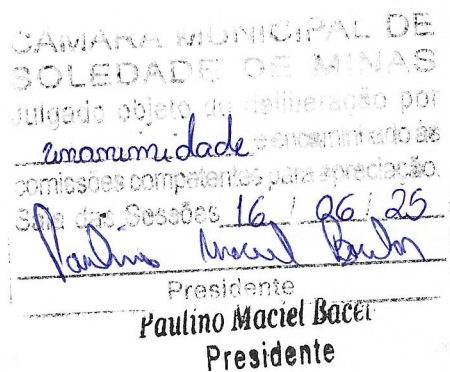 CAMARA MUNICIPAL DE
SOLEDADE DE MINAS
Julgado objeto de deliberação por
unanimidade e encaminhado às
comissões competentes para apreciação.
Sala das Sessões 16 / 06 / 25
Paulino Maciel Bacel
Presidente
Paulino Maciel Bacel
Presidente